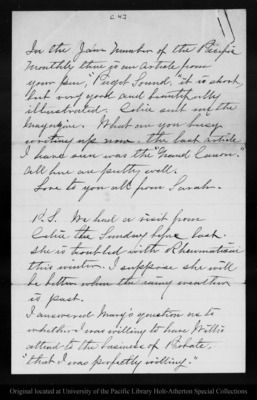 In the Jain number of the Pacific
Monthly there is an article from
your pen, "Puget Sound," it is short,
but very good and beautifully
illustrated. Celia sent me the
Magazine. What are you busy
writing up now. the last article
I have seen was the "Grand Canon."
All here are pretty well.
Love to you all from Sarah.
P.S. We had a visit from
Celia the Sunday before last.
She is troubled with Rheumatism
this winter. I suppose she will
be better when the rainy weather
is past.
I answered Mary's question as to
whether I was willing to have Willis
attend to the business of Probate,
"that I was perfectly willing."
Original located at University of the Pacific Library Holt-Atherton Special Collections